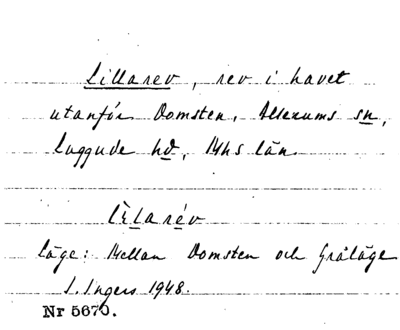 Lillarev, rev i havet
utanför Domsten, Allerums sn,
Luggude hd, Mhs län
lìlarév
Läge: Mellan Domsten och Gråläge
I. Ingers 1948.
Nr 5670.